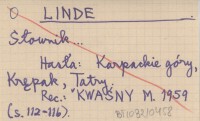 LINDE
Słownik...
Hasła: Karpackie góry,
Krępak, Tatry.
Rec.: KWAŚNY M. 1959
(s. 112-116).